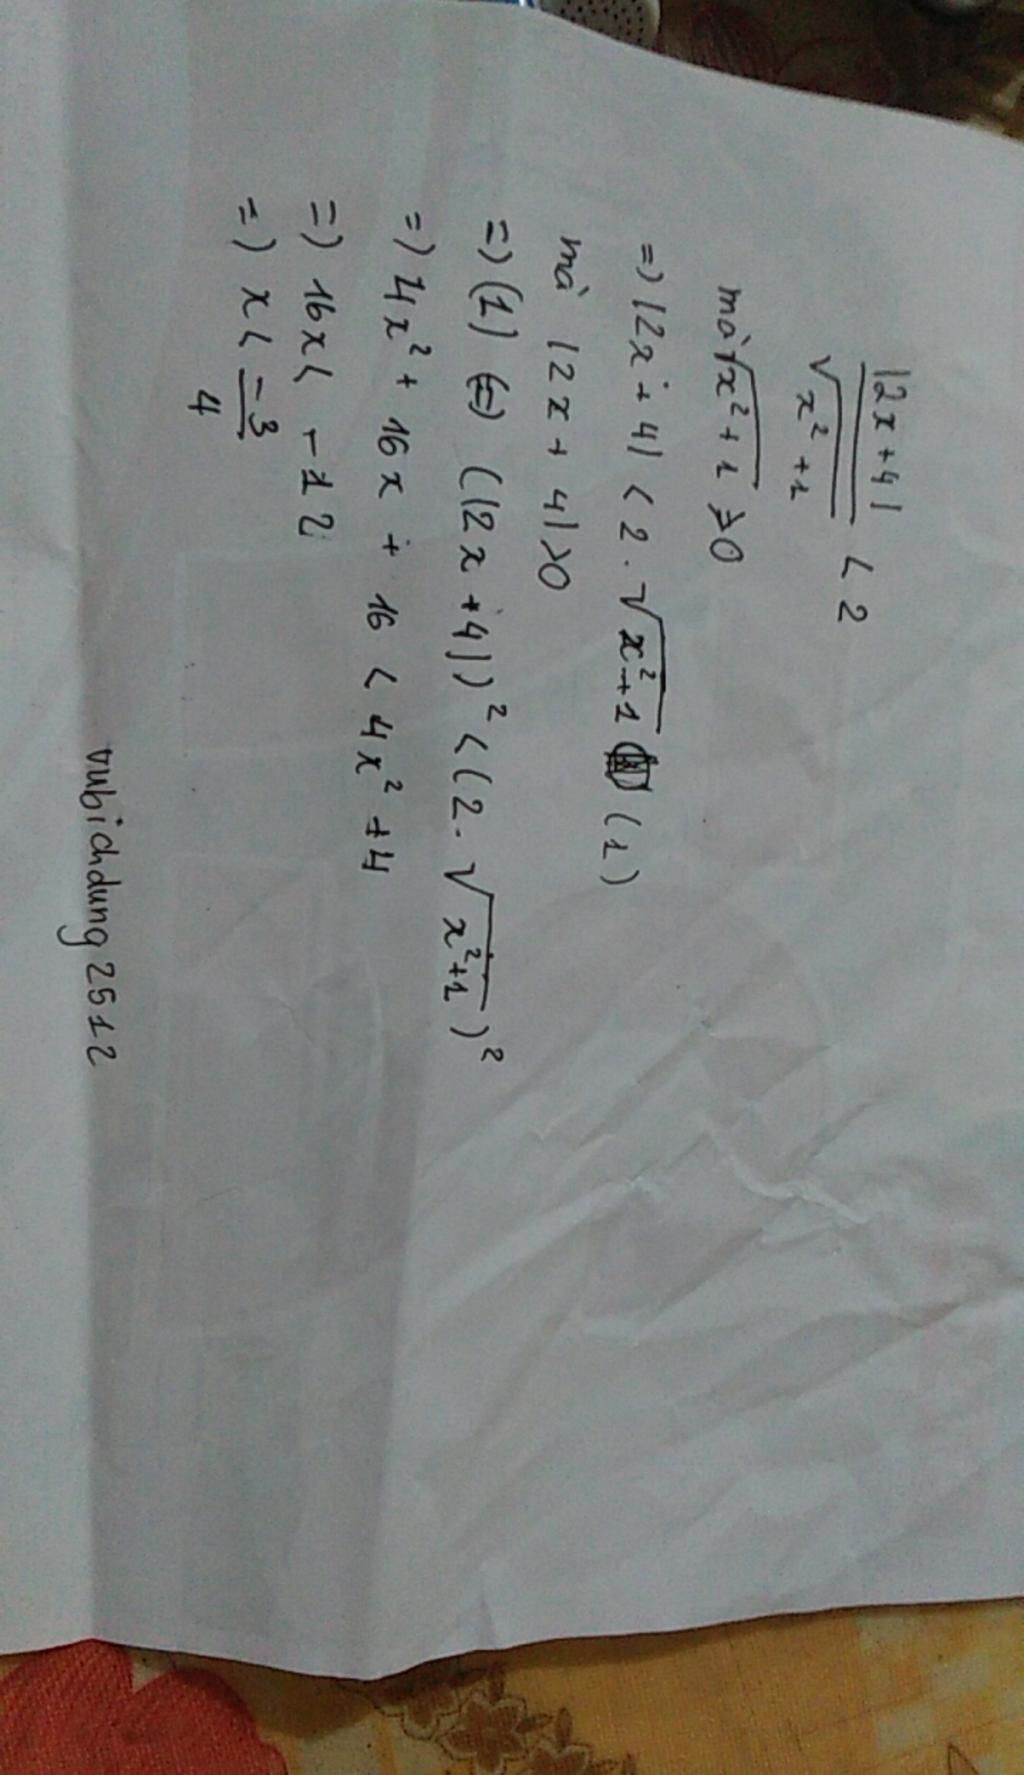 |2x+4|
√x²+1 < 2
mà √x²+1 ⩾0
=) |2x+4| < 2.√x²+1 (1)
mà |2x+4|>0
=) (1) (=) (|2x+4|)² < (2.√x²+1)²
=) 4x² + 16x + 16 < 4x² +4
=) 16x < -12
=) x < -3
4
vubichdung2512